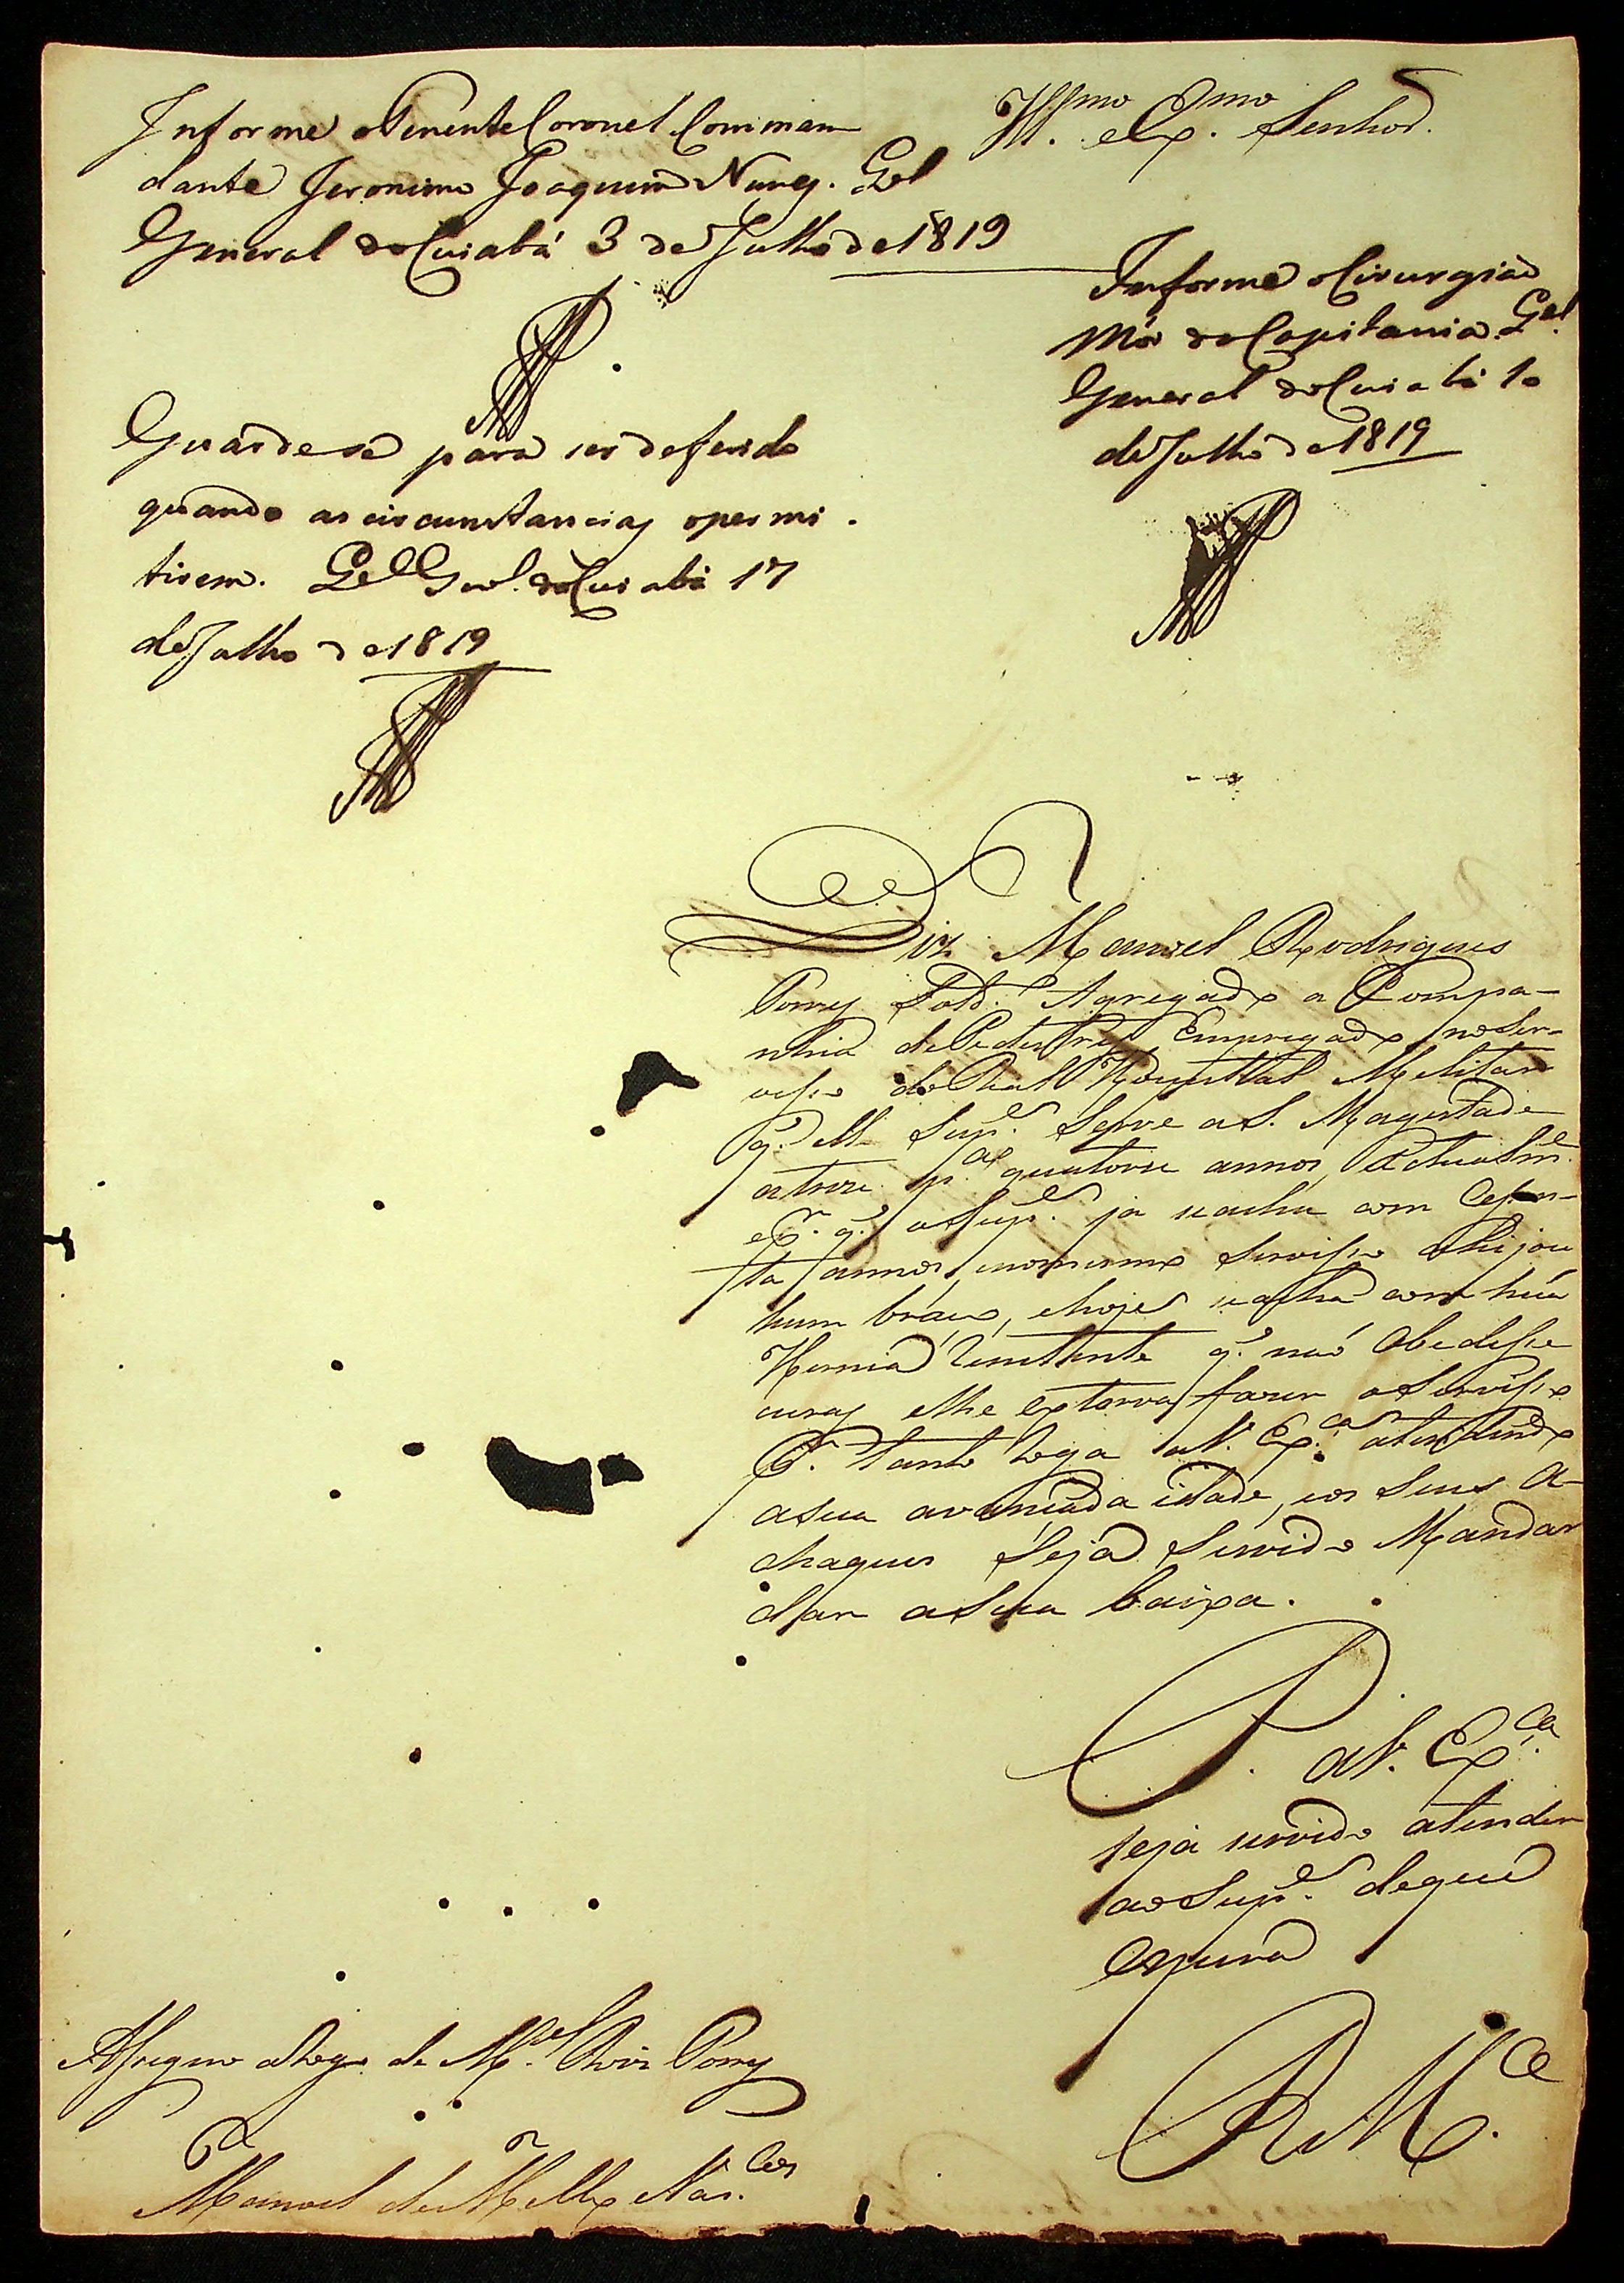 Informe oTenente Coronel Comman
dante Jeronimo Joaquim Nunes. Qel
General doCuiabá 3 deJulho de1819
Guardese para ser deferido
quando as circunstancias opermi.
tirem. Qel Genl. doCuiabá 17
deJulho de1819
Illmo. eExmo. Senhor.
Informe oCirurgiaõ
Mór daCapitania. Qel.
General doCuiabá 10
deJulho de1819
Diz Manoel Rodrigues
Pores Sold.e Agregado a Compa-
nhia dePedestres Empregado noSer-
visso doReal Hospittal Melitar
q. elle Sup.e Serve aS. Magestade
atreze p.a quatorze annos, Actualm.e
eP.r q. oSup.e ja seacha com Cessen-
ta annos, enomesmo Servisso
hum braço, ehoje seacha com húa
Hernia q. naõ Obedesse
curas elhe extorva fazer oServisso
P.r tanto Roga aV. Ex.ca atendendo
asua avançada idade, eos Seus A-
chaques Seja Servido Mandar
dar aSua baixa.
P. aV. Ex.ca
seja servido atender
aoSup.e deque
Espera
R M.ce
ARogo de M.el Roiz Pores
Manoel de Mello Vas.cos